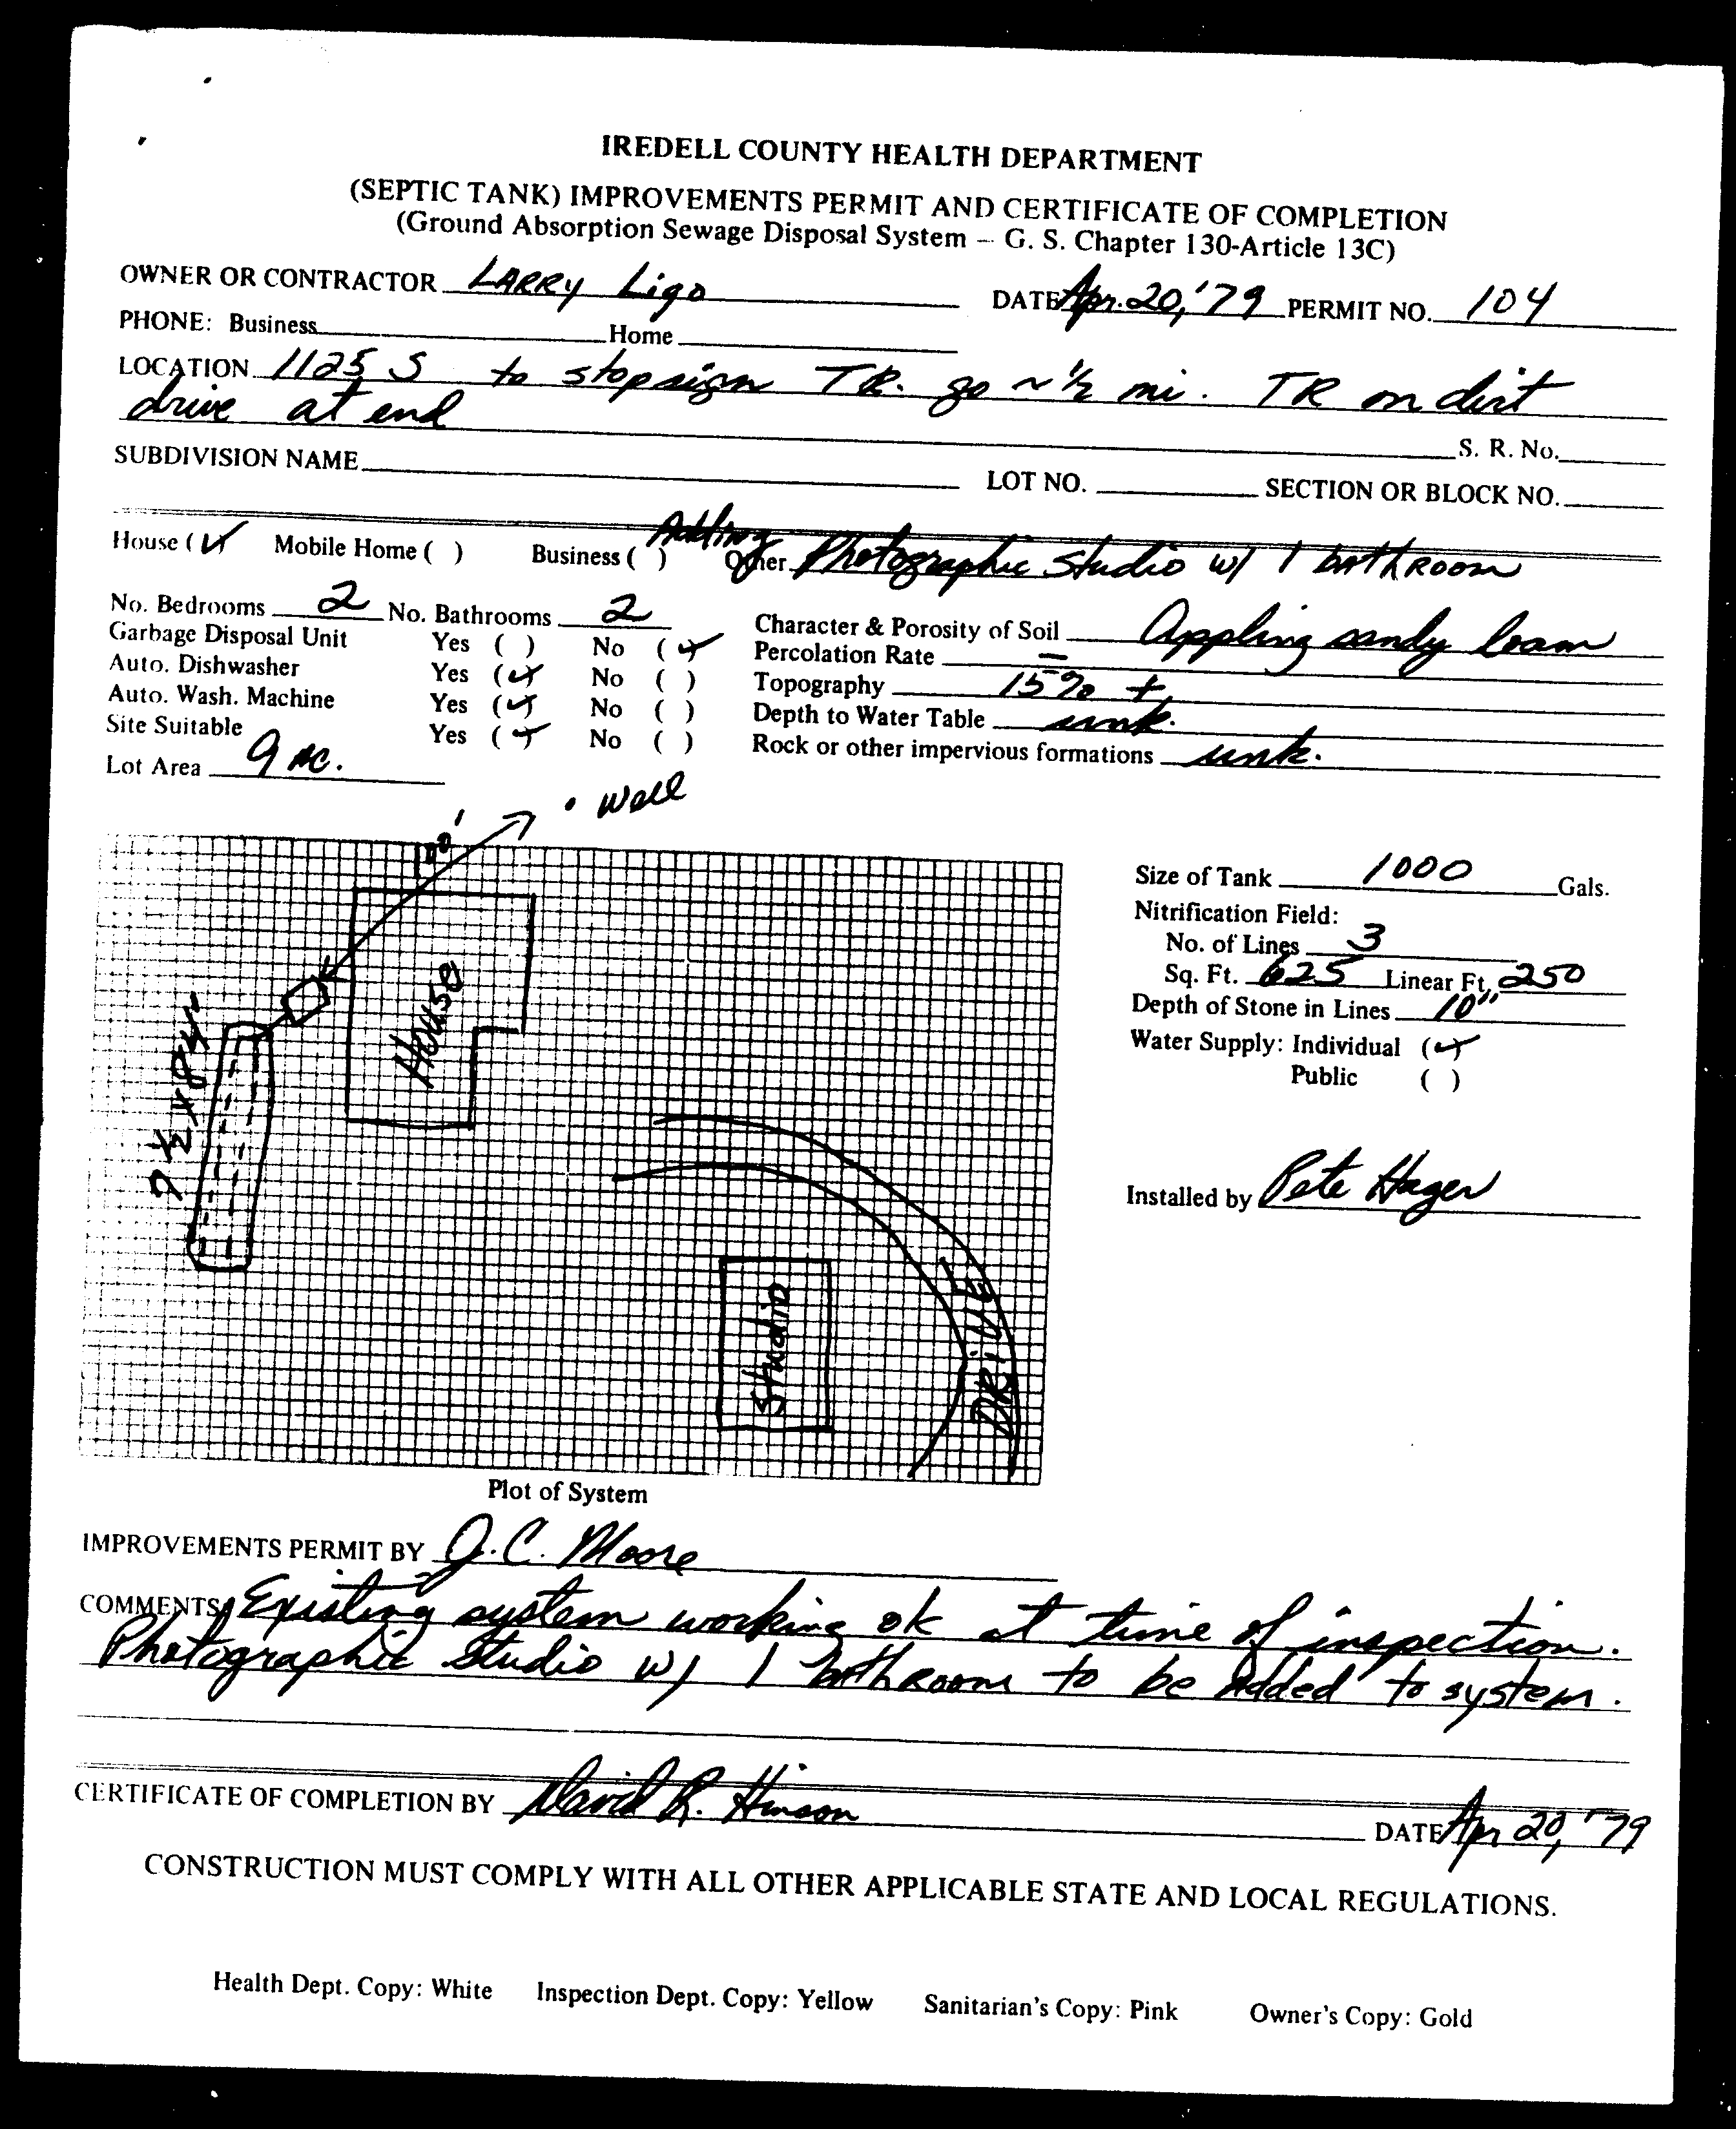 IREDELL COUNTY HEALTH DEPARTMENT
(SEPTIC TANK) IMPROVEMENTS PERMIT AND CERTIFICATE OF COMPLETION
(Ground Absorption Sewage Disposal System – G. S. Chapter 130-Article 13C)
OWNER OR CONTRACTOR LARRY Ligo DATE Apr. 20, '79 PERMIT NO. 104
PHONE: Business Home
LOCATION 1125 S to stopsign TR. go ~ 1/2 mi. TR on dirt
drive at end
S. R. No.
SUBDIVISION NAME LOT NO. SECTION OR BLOCK NO.
Adding
House (✓) Mobile Home ( ) Business ( ) Other Photographic Studio w/ 1 bathroom
No. Bedrooms 2 No. Bathrooms 2
Garbage Disposal Unit Yes ( ) No (✓)
Auto. Dishwasher Yes (✓) No ( )
Auto. Wash. Machine Yes (✓) No ( )
Site Suitable Yes (✓) No ( )
Lot Area 9 AC.
Character & Porosity of Soil Appling sandy loam
Percolation Rate —
Topography 15% +
Depth to Water Table unk.
Rock or other impervious formations unk.
Well
100'
House
7 1/2 x 84"
Studio
DRiVE
Plot of System
Size of Tank 1000 Gals.
Nitrification Field:
No. of Lines 3
Sq. Ft. 625 Linear Ft. 250
Depth of Stone in Lines 10"
Water Supply: Individual (✓)
Public ( )
Installed by Pete Hager
IMPROVEMENTS PERMIT BY J. C. Moore
COMMENTS Existing system working ok at time of inspection.
Photographic Studio w/ 1 bathroom to be Added to system.
CERTIFICATE OF COMPLETION BY David R. Hinson
DATE Apr 20, '79
CONSTRUCTION MUST COMPLY WITH ALL OTHER APPLICABLE STATE AND LOCAL REGULATIONS.
Health Dept. Copy: White Inspection Dept. Copy: Yellow Sanitarian's Copy: Pink Owner's Copy: Gold